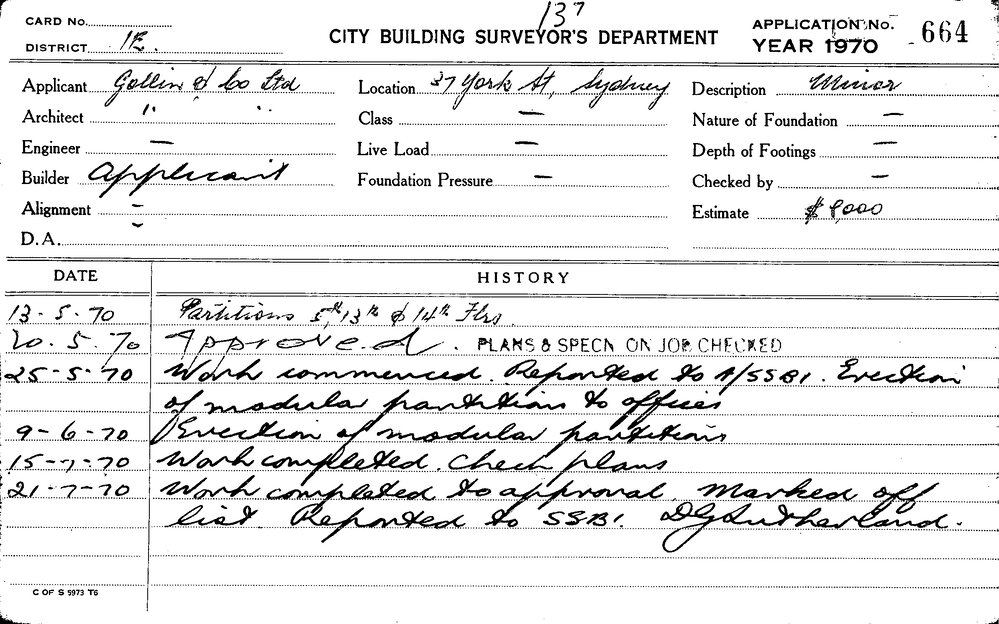 137
CARD No.
DISTRICT 1E.
CITY BUILDING SURVEYOR'S DEPARTMENT
APPLICATION No. 664
YEAR 1970
Applicant Gollin & Co Ltd
Location 37 York St, Sydney
Description Minor
Architect " "
Class —
Nature of Foundation —
Engineer —
Live Load —
Depth of Footings —
Builder Applicant
Foundation Pressure —
Checked by —
Alignment –
Estimate $8,000
D.A. –
DATE HISTORY
13-5-70 Partitions 5th, 13th & 14th Flrs.
20.5.70 Approved. PLANS & SPECN ON JOB CHECKED
25-5-70 Work commenced. Reported to A/SSBI. Erection
of modular partitions to offices
9-6-70 Erection of modular partitions
15-7-70 Work completed. Check plans
21-7-70 Work completed to approval. Marked off
list. Reported to SSBI. DG Sutherland.
C OF S 5973 T6